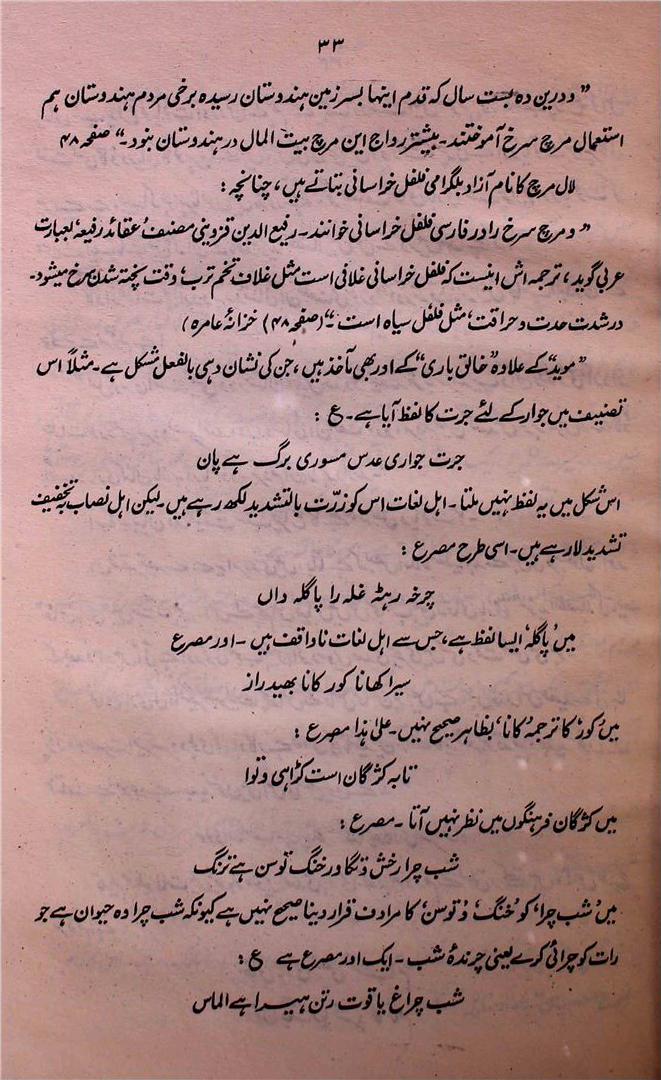 ۳۳
”و درین ده بست سال که قدم اینها بسر زمین هندوستان رسیده برخی مردم هندوستان هم
استعمال مرچ سرخ آموختند۔ بیشتر رواج این مرچ بیت المال در هندوستان بنود۔“ صفحہ ۴۸
لال مرچ کا نام آزاد بلگرامی فلفل خراسانی بتاتے ہیں، چنانچہ :
”و مرچ سرخ را در فارسی فلفل خراسانی خوانند۔ رفیع الدین قزوینی مصنف ’عقائد رفیعہ‘ بعبارت
عربی گوید، ترجمہ اش اینست کہ فلفل خراسانی غلافی است مثل غلاف تخم ترب، وقت پختہ شدن سرخ میشود۔
در شدت حدت و حراقت، مثل فلفل سیاہ است۔“ (صفحہ ۴۸) خزانۂ عامرہ)
”موید“ کے علاوہ ”خالق باری“ کے اور بھی مآخذ ہیں، جن کی نشان دہی بالفعل مشکل ہے۔ مثلاً اس
تصنیف میں جوار کے لئے جرت کا لفظ آیا ہے۔ ع :
جرت جواری عدس مسوری برگ ہے پان
اس شکل میں یہ لفظ نہیں ملتا۔ اہل لغات اس کو زرّت بالتشدید لکھ رہے ہیں۔ لیکن اہل نصاب بہ تخفیف
تشدید لا رہے ہیں۔ اسی طرح مصرع :
چرخہ رہٹہ غلہ را پاگلہ داں
میں ’پاگلہ‘ ایسا لفظ ہے، جس سے اہل لغات ناواقف ہیں۔ اور مصرع
سیرا کھانا کور کانا بھید راز
میں ’کور‘ کا ترجمہ ’کانا‘ بظاہر صحیح نہیں۔ علیٰ ہذا مصرع :
تابہ کژگان است کڑاہی و توا
میں کژگان فرہنگوں میں نظر نہیں آتا۔ مصرع :
شب چرا رخش دگا ور خنگ توسن ہے ترنگ
میں ’شب چرا‘ کو ’خنگ‘ و ’توسن‘ کا مرادف قرار دینا صحیح نہیں ہے کیونکہ شب چرا وہ حیوان ہے جو
رات کو چرائی کرے یعنی چرندۂ شب۔ ایک اور مصرع ہے ع :
شب چراغ یاقوت رتن ہیرا ہے الماس